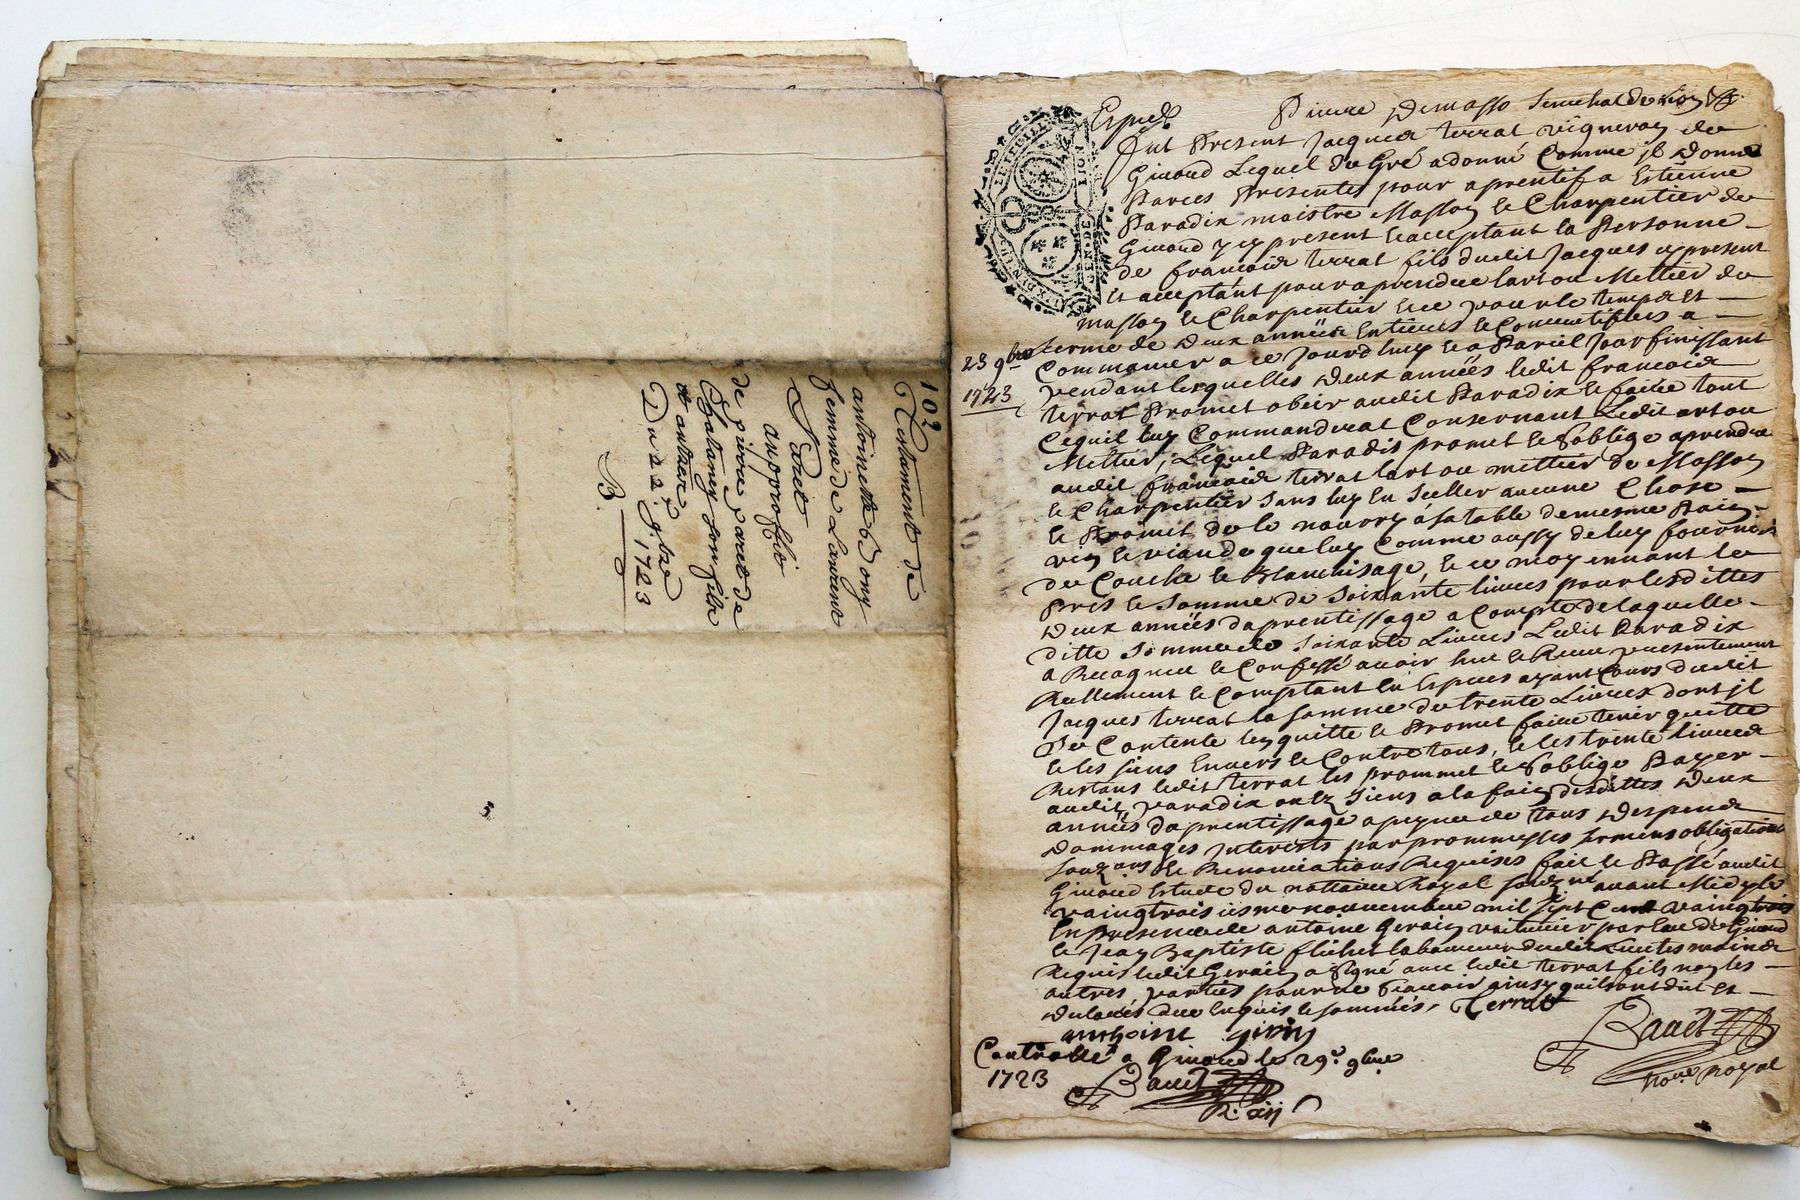 102
Testament de
antoinette
femme de Laurent
au proffit
de pierre
son fils
et autres
Du 22e 9bre
1723
B.
GEN. DE LION
Expied
Pierre Demasso Senechal de Lion
23 9bre
1723
Fut Present Jacques terrat vigneron de
Givord Lequel de Gré a donné Comme il donne
Par ces Presentes pour aprentif a Estienne
Paradix maistre Masson & Charpentier de
Givord y cy present & acceptant la Personne
de francois terrat fils dudit Jacques cy present
Et acceptant pour aprendre lart ou Mettier de
masson & Charpentier & ce pour le temps et
terme de Deux années Entieres & Consecutifves a
Commancer a ce Jourdhuy & a Pareil Jour finissant
pendant lesquelles Deux années ledit francois
terrat Promet obeir audit Paradix & faire tout
Cequil luy Commanderat Consernant Ledit art ou
Mettier, Lequel Paradis promet & soblige aprendre
audit francois terrat lart ou mettier de Masson
& Charpentier sans luy En Seller aucune Chose
& Promet de le nourry a sa table de mesme Pain
vin & viande que luy Comme aussy de luy fournir
de Couche & Blanchisage, & ce moyennant le
Pris & Somme de Soixante livres pour lesdittes
Deux années daprentissage a Compte de laquelle
ditte Somme de Soixante Livres Ledit Paradix
a Recognu & Confessé avoir heu & Receu presentement
Reellement & Comptant En Espèces ayant Cours dudit
Jacques terrat la somme de trente Livres dont il
Se Contente len quitte & Promet faire tenir quitte
& les siens Envers & Contre tous, & les trente livres
Restans ledit terrat les prommet & soblige Payer
audit paradix ou Siens a la fain desdittes Deux
années daprentissage a peyne de tous Despends
Dommages Interests par prommesses sermens obligations
& Renonciations Requises fait & Passé audit
Givord Estude du nottaire Royal souzné avant Midy le
vaingtrois iesme novembre mil sept Cent vaingtrois
En presence de antoine Gerain voiturier par Eau de Givord
& Jean Baptiste flichet laboureur dudit Lieu tesmoins
Requis ledit Gerain a Signé avec ledit terrat fils non les
autres parties pour ne Scavoir ainsy quil ont dit et
Declarés de ce Enquis & sommés, Terrat
Controllé a Givord le 29e 9bre
1723
nore Royal